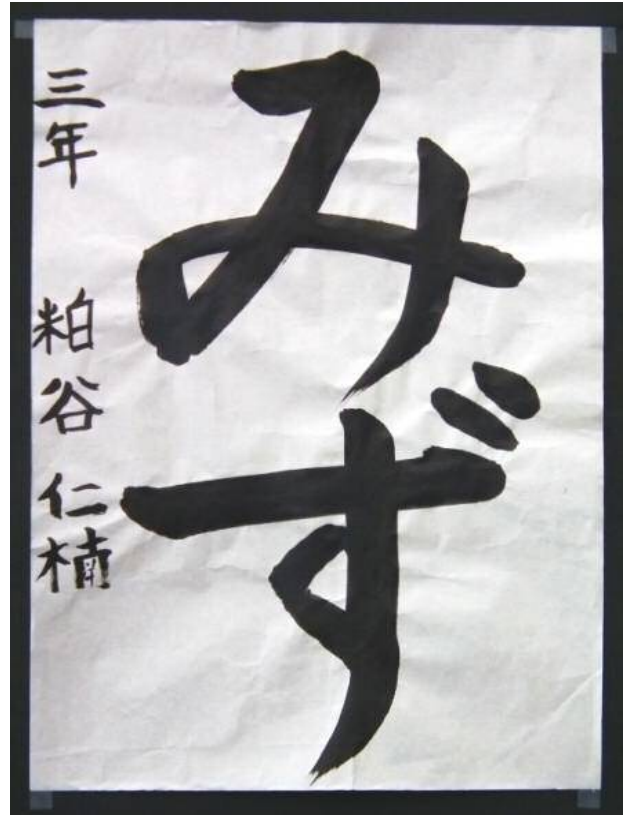 みず
三年 粕谷 仁楠